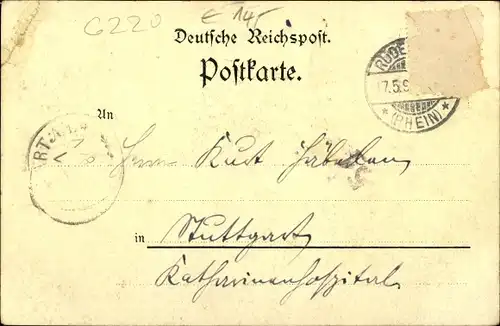 G220 E 14,-
Deutsche Reichspost.
Postkarte.
RÜDE
17.5.9
* (RHEIN) *
An
Herrn Kurt
in Stuttgart
Katharinenhospital